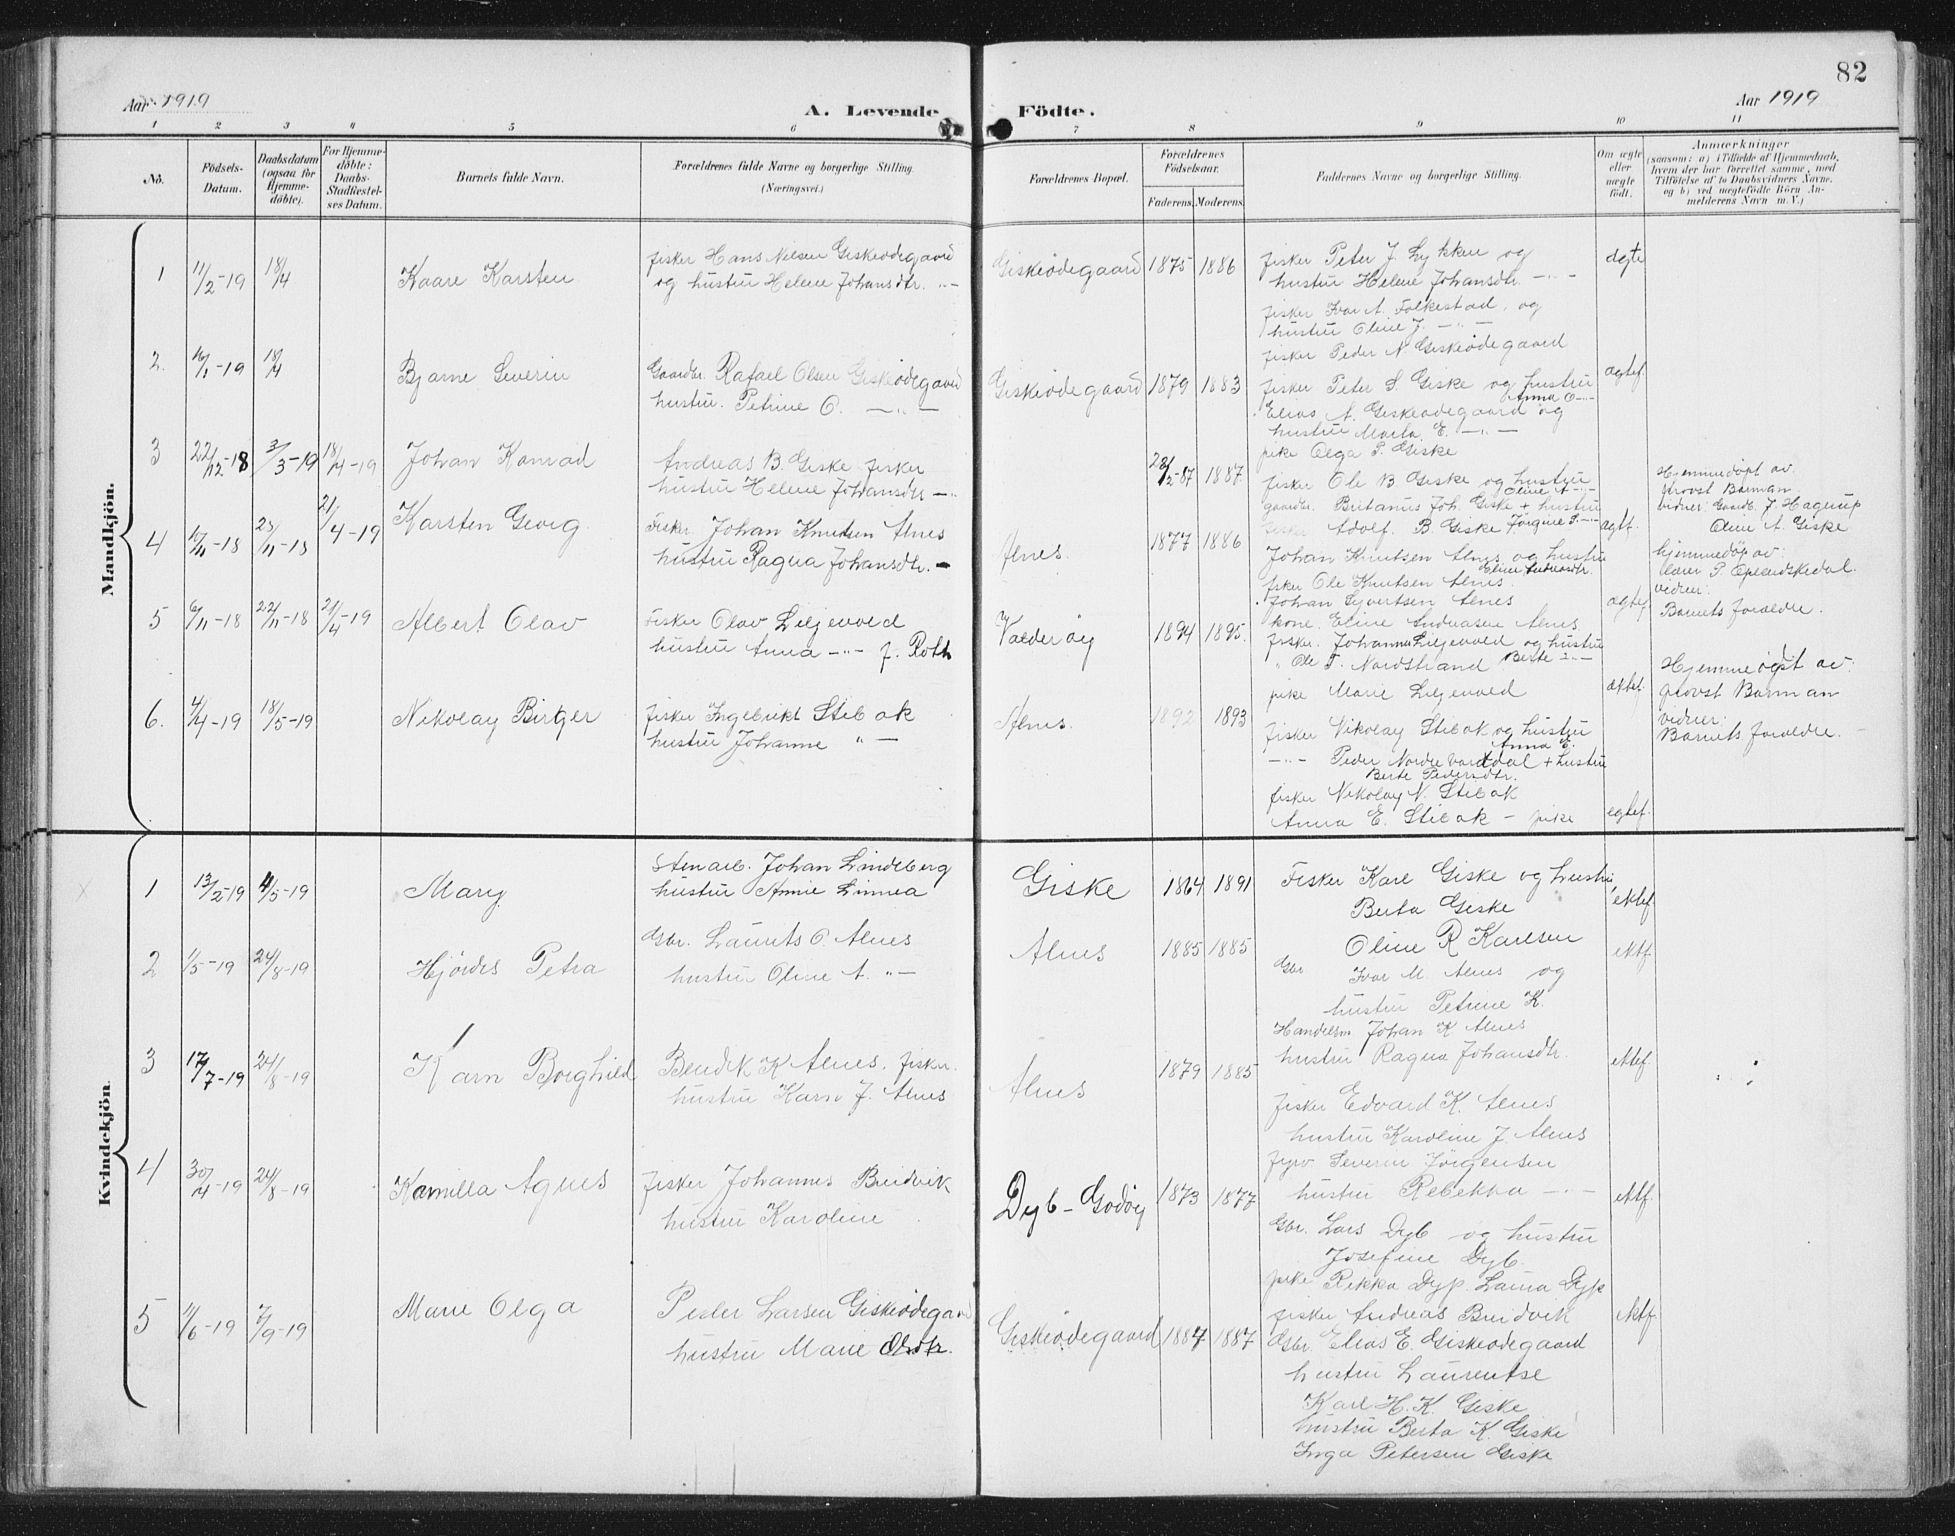 82
Aar 1919
A. Levende Födte.
Aar 1919
1 2 3 4 5 6 7 8 9 10 11
No.
Födsels-
Datum.
Daabsdatum
(ogsaa for
Hjemme-
døbte).
For Hjemme-
døbte:
Daabs-
Stadfæstel-
ses Datum.
Barnets fulde Navn.
Forældrenes fulde Navne og borgerlige Stilling.
(Næringsvei.)
Forældrenes Bopæl.
Forældrenes
Födselsaar.
Faderens. Moderens.
Faddernes Navne og borgerlige Stilling.
Om ægte
eller
uægte
født.
Anmærkninger
(saasom: a) i Tilfælde af Hjemmedaab,
hvem der har forrettet samme, med
Tilföielse af to Daabsvidners Navne,
og b) ved uægtefödte Börn An-
melderens Navn m. V.)
Mandkjön.
1 11/2-19 18/4 Kaare Karsten
fisker Hans Nilsen Giskeødegaard
og hustru Helene Johansdtr. -"-
Giskeødegaard 1875 1886
fisker Peter J. Lykken og
hustru Helene Johansdtr. -"-
fisker Ivar A. Folkestad, og
hustru Oline J. -"-
fisker Peder N Giskeødegaard
ægte
2. 16/1-19 18/4 Bjarne Severin
Gaardbr. Rafael Olsen Giskeødegaard
hustru. Petrine O. -"-
Giskeødegaard 1879 1883
fisker Peter S. Giske og hustru
Anna O -"-
Elias A. Giskeødegaard og
hustru Marta E. -"-
pike Olga P. Giske
ægtef.
3 22/12-18 3/3-19 18/4-19 Johan Konrad
Andreas B. Giske fisker
hustru Helene Johansdtr -"-
28/2-87 1887
fisker Ole B Giske og hustru
Oline A -"-
gaardbr. Britanus Joh. Giske + hustru
Adolf. B. Giske Jørgine P. -"-
ægtf.
Hjemmedøpt av
provst Barman
vidner: Gaardb. J. Hagerup
Oline A. Giske
4 10/11-18 23/11-18 21/4-19 Karsten Georg.
Fisker Johan Knudsen Alnes
hustru Ragna Johansdtr. -
Alnes. 1877 1886
Johan Knutsen Alnes og hustru
Eline Andreasdtr.
fisker Ole Knutsen Alnes
Johan Syvertsen Alnes
kone. Eline Andreasen Alnes
ægtef
hjemmedøp av:
lærer P. Oplandskedal.
vidner:
Barnets forældre.
5 6/11-18 22/11-18 21/4-19 Albert Olav
Fisker Olav Liljevold
hustru Anna -"- f. Roth
Valderøy 1894 1895.
fisker. Johannes Liljevold og hustru
" Ole T. Nordstrand Berte -"-
pike Marie Liljevold
ektef.
Hjemmedøpt av:
provst Barman
vidner:
Barnets forældre.
6. 4/4-19 18/5-19 Nikolay Birger
fisker Ingebrikt Stibak
hustru Johanne " -
Alnes. 1892 1893
fisker Nikolay Stibak og hustru
Anna E.
-"- Peder Nordre Vartdal + hustru
Berte Pedersdtr.
fisker Nikolay N. Stibak
Anna E. Stibak - pike
egtef.
Kvindekjön.
1 13/2-19 4/5-19 Mary
Stenarb. Johan Lindeberg
hustru Annie Linnea
Giske 1864 1891
Fisker Karl Giske og hustru
Berta Giske
Oline R Karlsen
ektef
2 1/5-19 24/8-19 Hjørdis Petra
Gbr. Laurits O. Alnes
hustru Oline A. "-
Alnes 1885 1885
Gbr Ivar M. Alnes og
hustru Petrine K.
Handelsm Johan K Alnes
hustru Ragna Johansdtr.
ektf.
3 17/7-19 24/8-19 Karn Borghild
Bendik K Alnes. fisker.
hustru Karn J. Alnes
Alnes 1879 1885
fisker Edvard K. Alnes
hustru Karoline J. Alnes
fyrv Severin Jørgensen
hustru Rebekka -"-
ektef
4 30/4-19 24/8-19 Kamilla Agnes
fisker Johannes Burdvik
hustru Karoline
Dyb - Godøy 1873 1877
Gbr. Lars Dyb og hustru
Josefine Dyb.
pike Rikka Dyp. Laura Dyp
fisker Andreas Burdvik
ektf.
5 11/6-19 7/9-19 Marie Olga
Peder Larsen Giskeødegaard
hustru Marie Olsdtr.
Giskeødegaard 1884 1887
Gbr. Elias E. Giskeødegaard
hustru Laurentse
Karl H. K. Giske
hustru Berta K. Giske
Inga Petersen Giske
ektf.